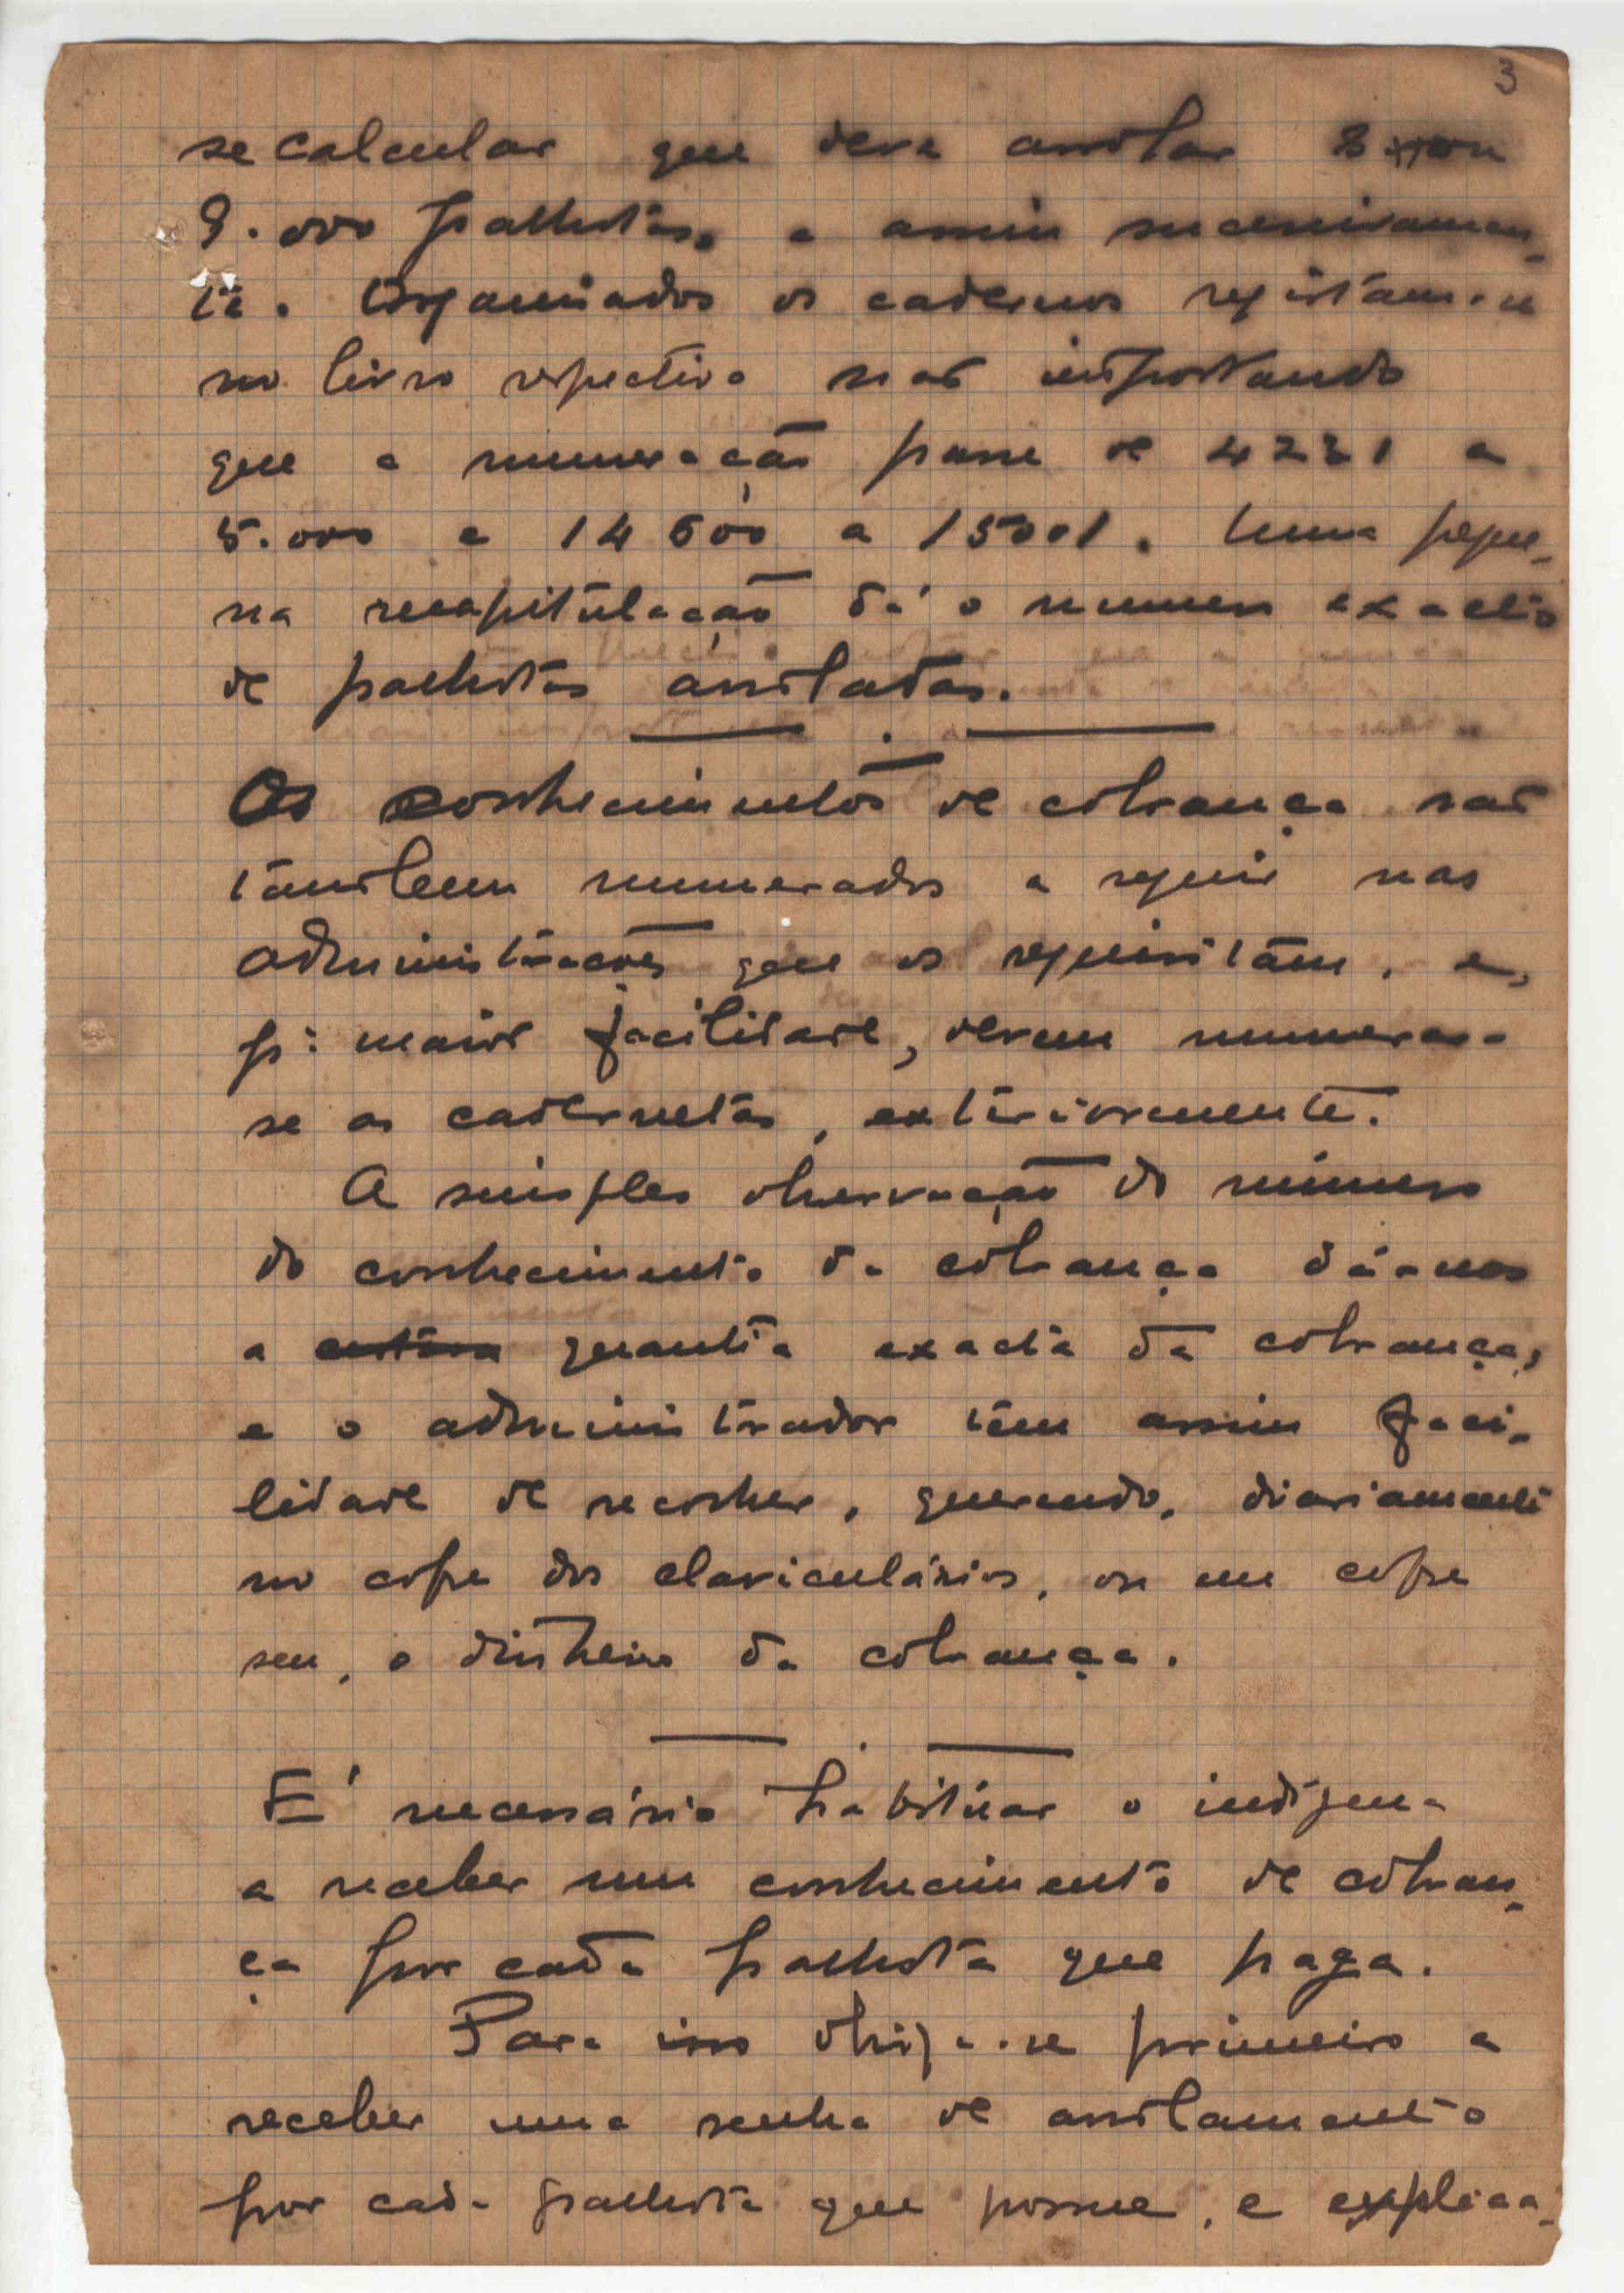 3
se calcular que deve arrolar 8 ou
9.000 palhotas, e assim sucessivamen-
te. Organiados os cadernos registam-se
no livro respectivo não importando
que a numeração passe de 4231 a
5.000 e 14600 a 15001. Uma peque-
na recapitulação dá o numero exacto
de palhotas arroladas.
Os conhecimentos de cobrança são
tambem numerados a seguir nas
administrações que os requisitam, e,
pª maior facilidade, devem numerar-
se as cadernetas, exteriormente.
A simples observação do número
do conhecimento da cobrança dá-nos
a quantia exacta da cobrança,
e o administrador tem assim faci-
lidade de recolher, querendo, diariamente
no cofre dos claviculários, ou em cofre
seu, o dinheiro da cobrança.
E' necessário habituar o indígena
a receber um conhecimento de cobran-
ça por cada palhota que paga.
Para isso obriga-se primeiro a
receber uma senha de arrolamento
por cada palhota que possue, e explica-